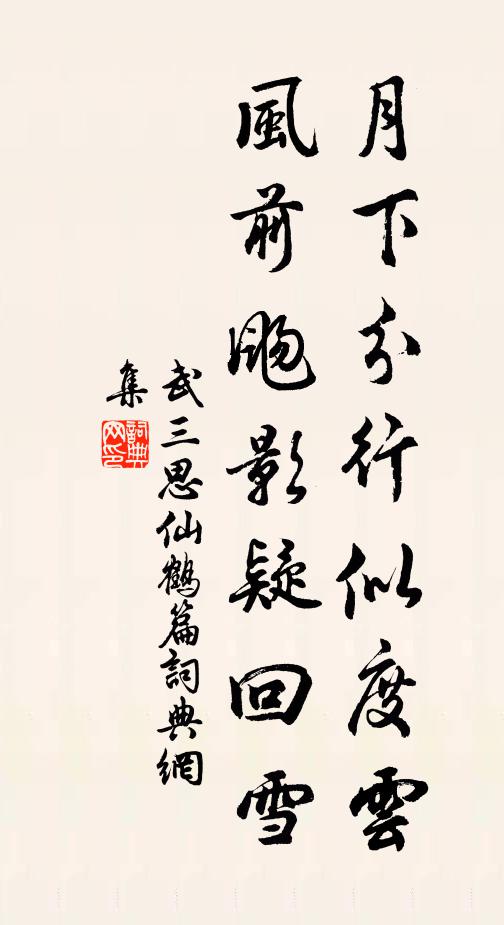 月下分行似度雲
風前颺影疑回雪
武三思仙鶴篇詞典網
集
詞典
网印